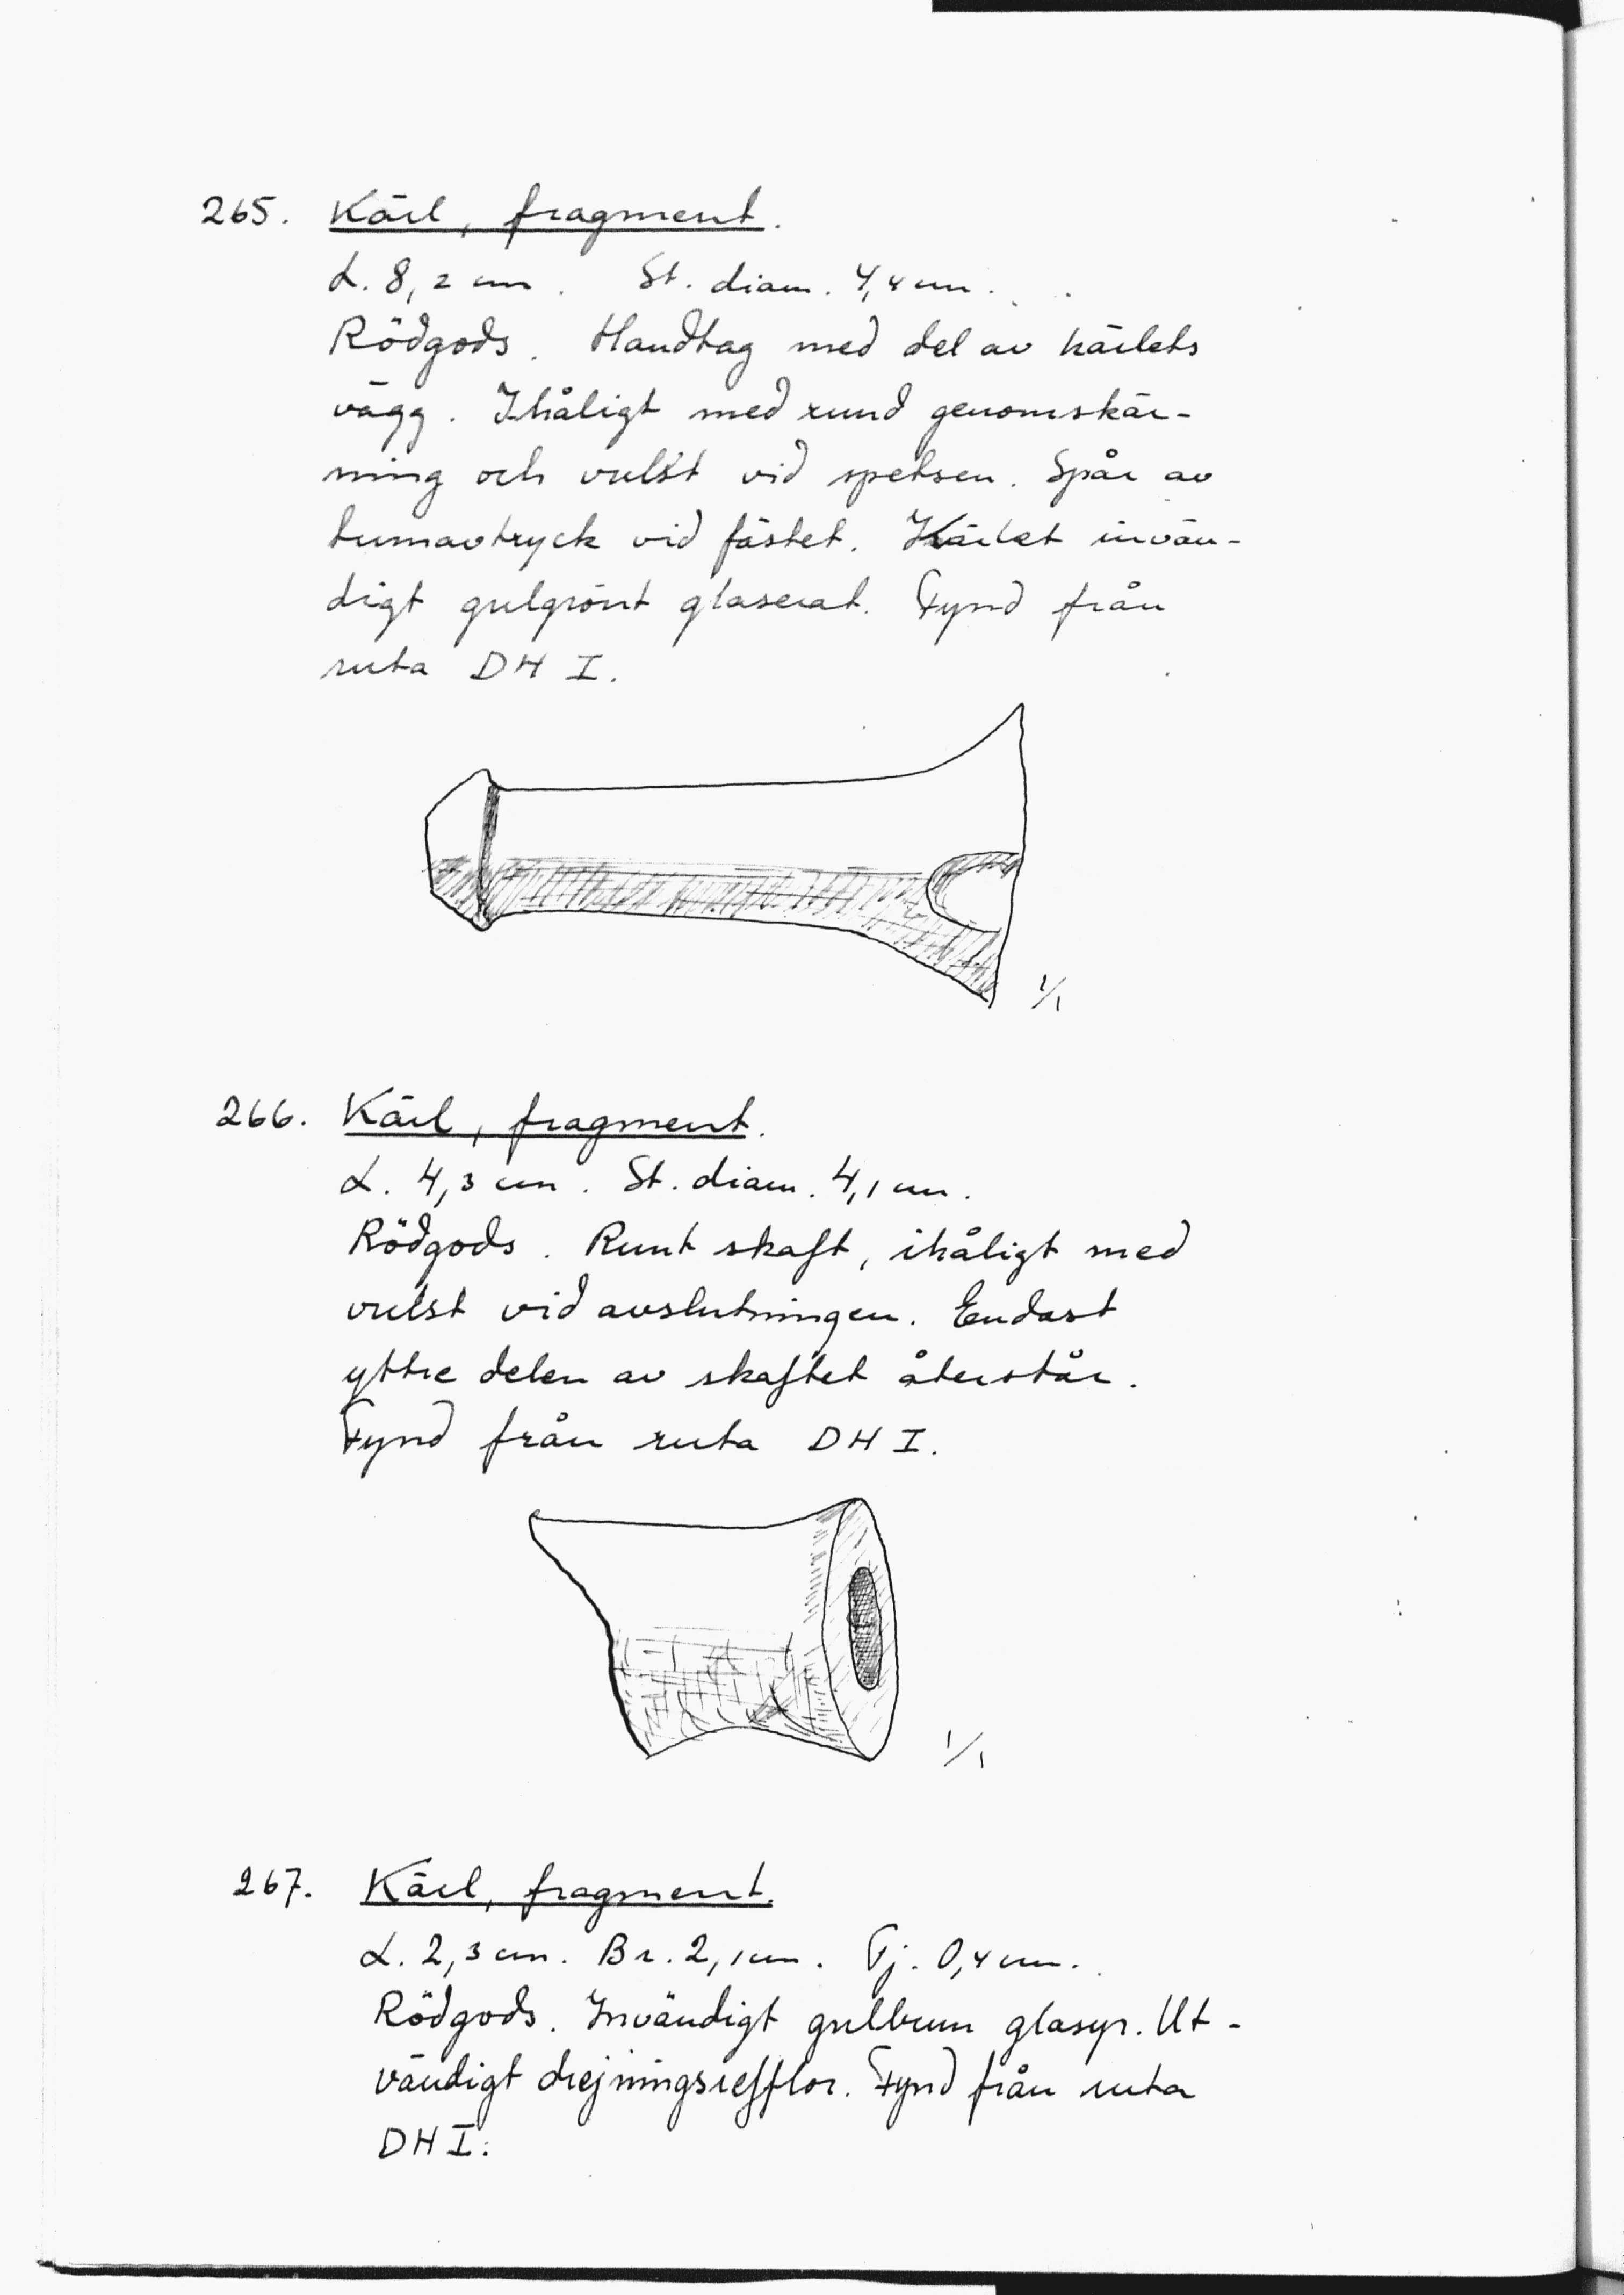 265. Kärl, fragment.
L. 8,2 cm. St. diam. 4,4 cm.
Rödgods. Handtag med del av kärlets
vägg. Ihåligt med rund genomskär-
ning och vulst vid spetsen. Spår av
tumavtryck vid fästet. Kärlet invän-
digt gulgrönt glaserat. Fynd från
ruta DH I.
1/1
266. Kärl, fragment.
L. 4,3 cm. St. diam. 4,1 cm.
Rödgods. Runt skaft, ihåligt med
vulst vid avslutningen. Endast
yttre delen av skaftet återstår.
Fynd från ruta DH I.
1/1
267. Kärl, fragment.
L. 2,3 cm. Br. 2,1 cm. Tj. 0,4 cm.
Rödgods. Invändigt gulbrun glasyr. Ut-
vändigt drejningsrefflor. Fynd från ruta
DH I.